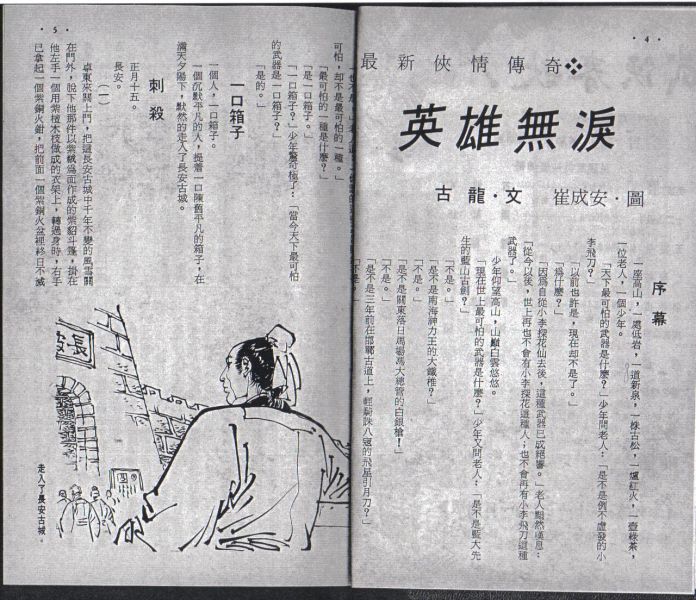 ·4·
最新俠情傳奇
英雄無淚
古龍·文　崔成安·圖
序幕
一座高山，一處低岩，一道新泉，一株古松，一爐紅火，一壺綠茶，
一位老人，一個少年。
「天下最可怕的武器是什麼？」少年問老人：「是不是例不虛發的小
李飛刀？」
「以前也許是，現在却不是了。」
「爲什麼？」
「因爲自從小李探花仙去後，這種武器已成絕響。」老人黯然嘆息：
「從今以後，世上再也不會有小李探花這種人；也不會再有小李飛刀這種
武器了。」
少年仰望高山，山巔白雲悠悠。
「現在世上最可怕的武器是什麼？」少年又問老人：「是不是藍大先
生的藍山古劍？」
「不是。」
「是不是南海神力王的大鐵椎？」
「不是。」
「是不是關東落日馬場馮大總管的白銀槍！」
「不是。」
「是不是三年前在邯鄲古道上，輕騎誅八寇的飛星引月刀？」
「不是。」
·5·
可怕，却不是最可怕的一種。」
「最可怕的一種是什麼？」
「是一口箱子。」
「一口箱子？」少年驚奇極了：「當今天下最可怕
的武器是一口箱子？」
「是的。」
一口箱子
一個人，一口箱子。
一個沉默平凡的人，提着一口陳舊平凡的箱子，在
滿天夕陽下，默然的走入了長安古城。
刺殺
正月十五。
長安。
（一）
卓東來關上門，把這長安古城中千年不變的風雪關
在門外，脫下他那件以紫絨爲面作成的紫貂斗篷，掛在
他左手一個用紫檀木枝做成的衣架上，轉過身時，右手
已拿起一個紫銅火鉗，把前面一個紫銅火盆裡終日不滅
長安
走入了長安古城。